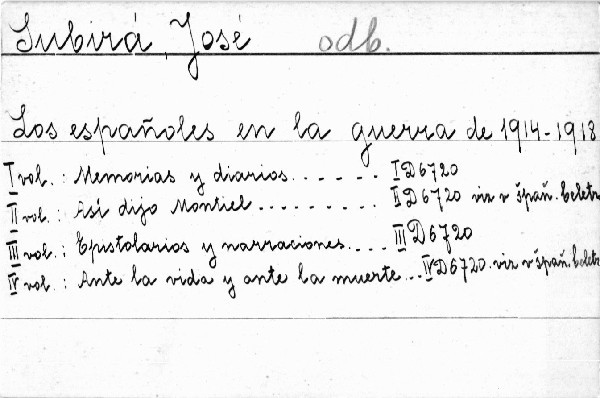 Subirá, José odb.
Los españoles en la guerra de 1914-1918
I vol. : Memorias y diarios. . . . . . I D 6720
II vol. : Así dijo Montiel . . . . . . . . II D 6720 viz v špaň. beletr.
III vol. : Epistolarios y narraciones. . . . III D 6720
IV vol. : Ante la vida y ante la muerte . . IV D 6720. viz v špaň. beletr.